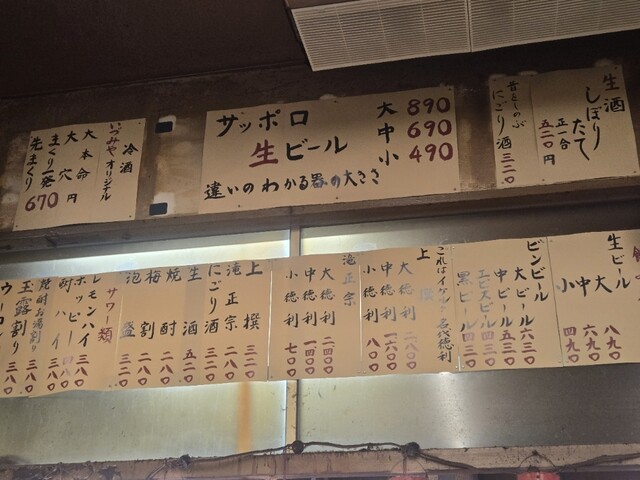 生酒
しぼり
たて
正一合
五二〇円
昔をしのぶ
にごり酒 三二〇
サッポロ
生ビール
大 890
中 690
小 490
違いのわかる器の大きさ
冷酒
いづみやオリジナル
大本命
大穴
まくり一発
先まくり
670円
生ビール
大 八九〇
中 六九〇
小 四九〇
ビンビール
大ビール 六三〇
中ビール 五三〇
エビスビール 四三〇
黒ビール 四三〇
これはイケル 名代徳利
上撰
大徳利 二八〇〇
中徳利 一六〇〇
小徳利 八〇〇
滝正宗
大徳利 二四〇〇
中徳利 一四〇〇
小徳利 七〇〇
上撰 三二〇
滝正宗 二八〇
にごり酒 三二〇
生酒 五二〇
焼酎 二八〇
梅割 二八〇
泡盛 三二〇
サワー類
レモンハイ 三八〇
ホッピー 三八〇
酎ハイ
焼酎お湯割り 三八〇
玉露割り 三八〇